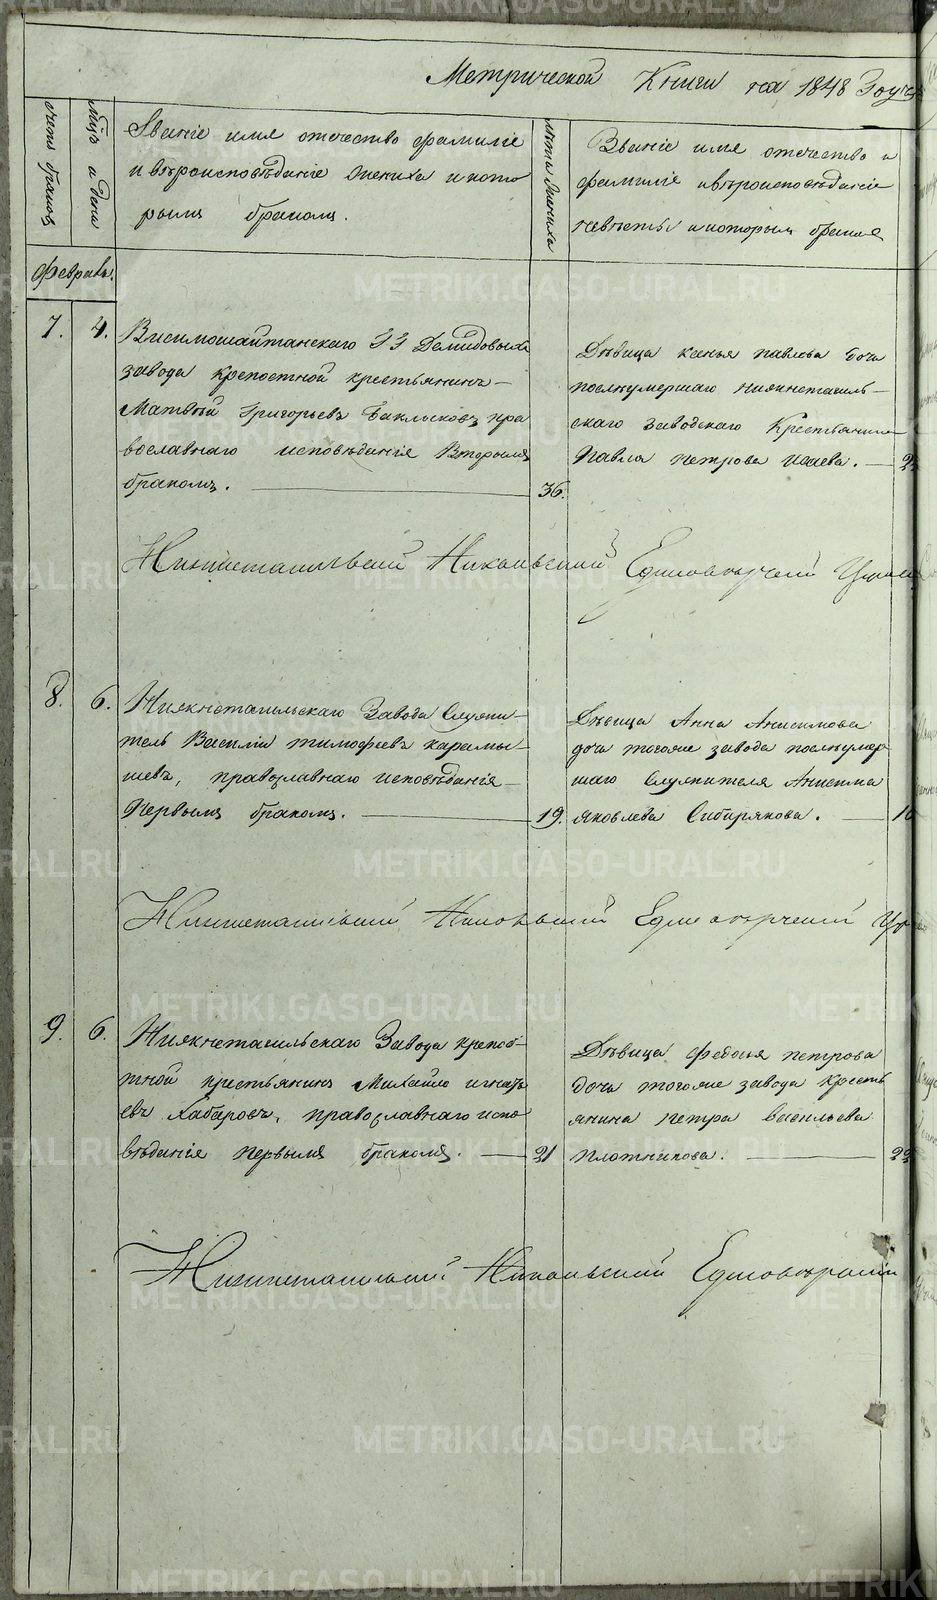 Метрической Книги на 1848 Году
счетъ браковъ
мѣц. и дни
Званіе имя отечество фамиліе
и вѣроисповѣданіе жениха и кото
рымъ бракомъ.
лѣта жениха
Званіе имя отечество и
фамиліе ивѣроисповѣданіе
невѣсты и которым бракомъ
Февраль.
7.
4.
Висимошайтанскаго ГГ Демидовыхъ
завода крепостной крестьянинъ—
Матвѣй Григорьевъ Баклыковъ пра
вославнаго исповѣданія Вторымъ
бракомъ. — 36.
Дѣвица ксенья павлова дочь
послѣумершаго нижнетагиль—
скаго заводскаго Крестьянина
Павла петрова Исаева. —
Нижнетагильский Никольский Единоверческой Церкви
8.
6.
Нижнетагильскаго Завода Служи—
тель Василій тимофѣевъ карамы—
шевъ, православнаго исповѣданія—
Первымъ бракомъ. — 19.
Дѣвица Анна Анисимова
дочь тогоже завода послѣумер
шаго Служителя Анисима
Яковлева Сибирякова. —
Нижнетагильский Никольский Единоверческий
9.
6.
Нижнетагильскаго Завода крепос—
тной крестьянинъ Михайло игнать
евъ Хабаровъ, православнаго испо
вѣданія первымъ бракомъ. — 21
Дѣвица федосья петрова
дочь тогоже завода Кресть
янина петра васильева
плотникова. — 22
Нижнетагильский Никольский Единоверческий
METRIKI.GASO-URAL.RU